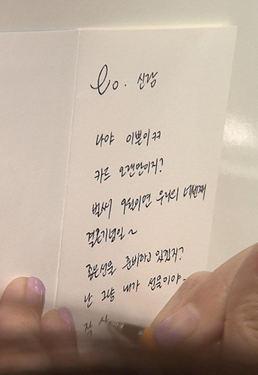 to. 신랑
나야 이쁜이ㅋㅋ
카드 오랜만이지?
벌써 9월이면 우리의 네번째
결혼기념일~
좋은선물 준비하고 있겠지?
난 그냥 내가 선물이야~
잘 사